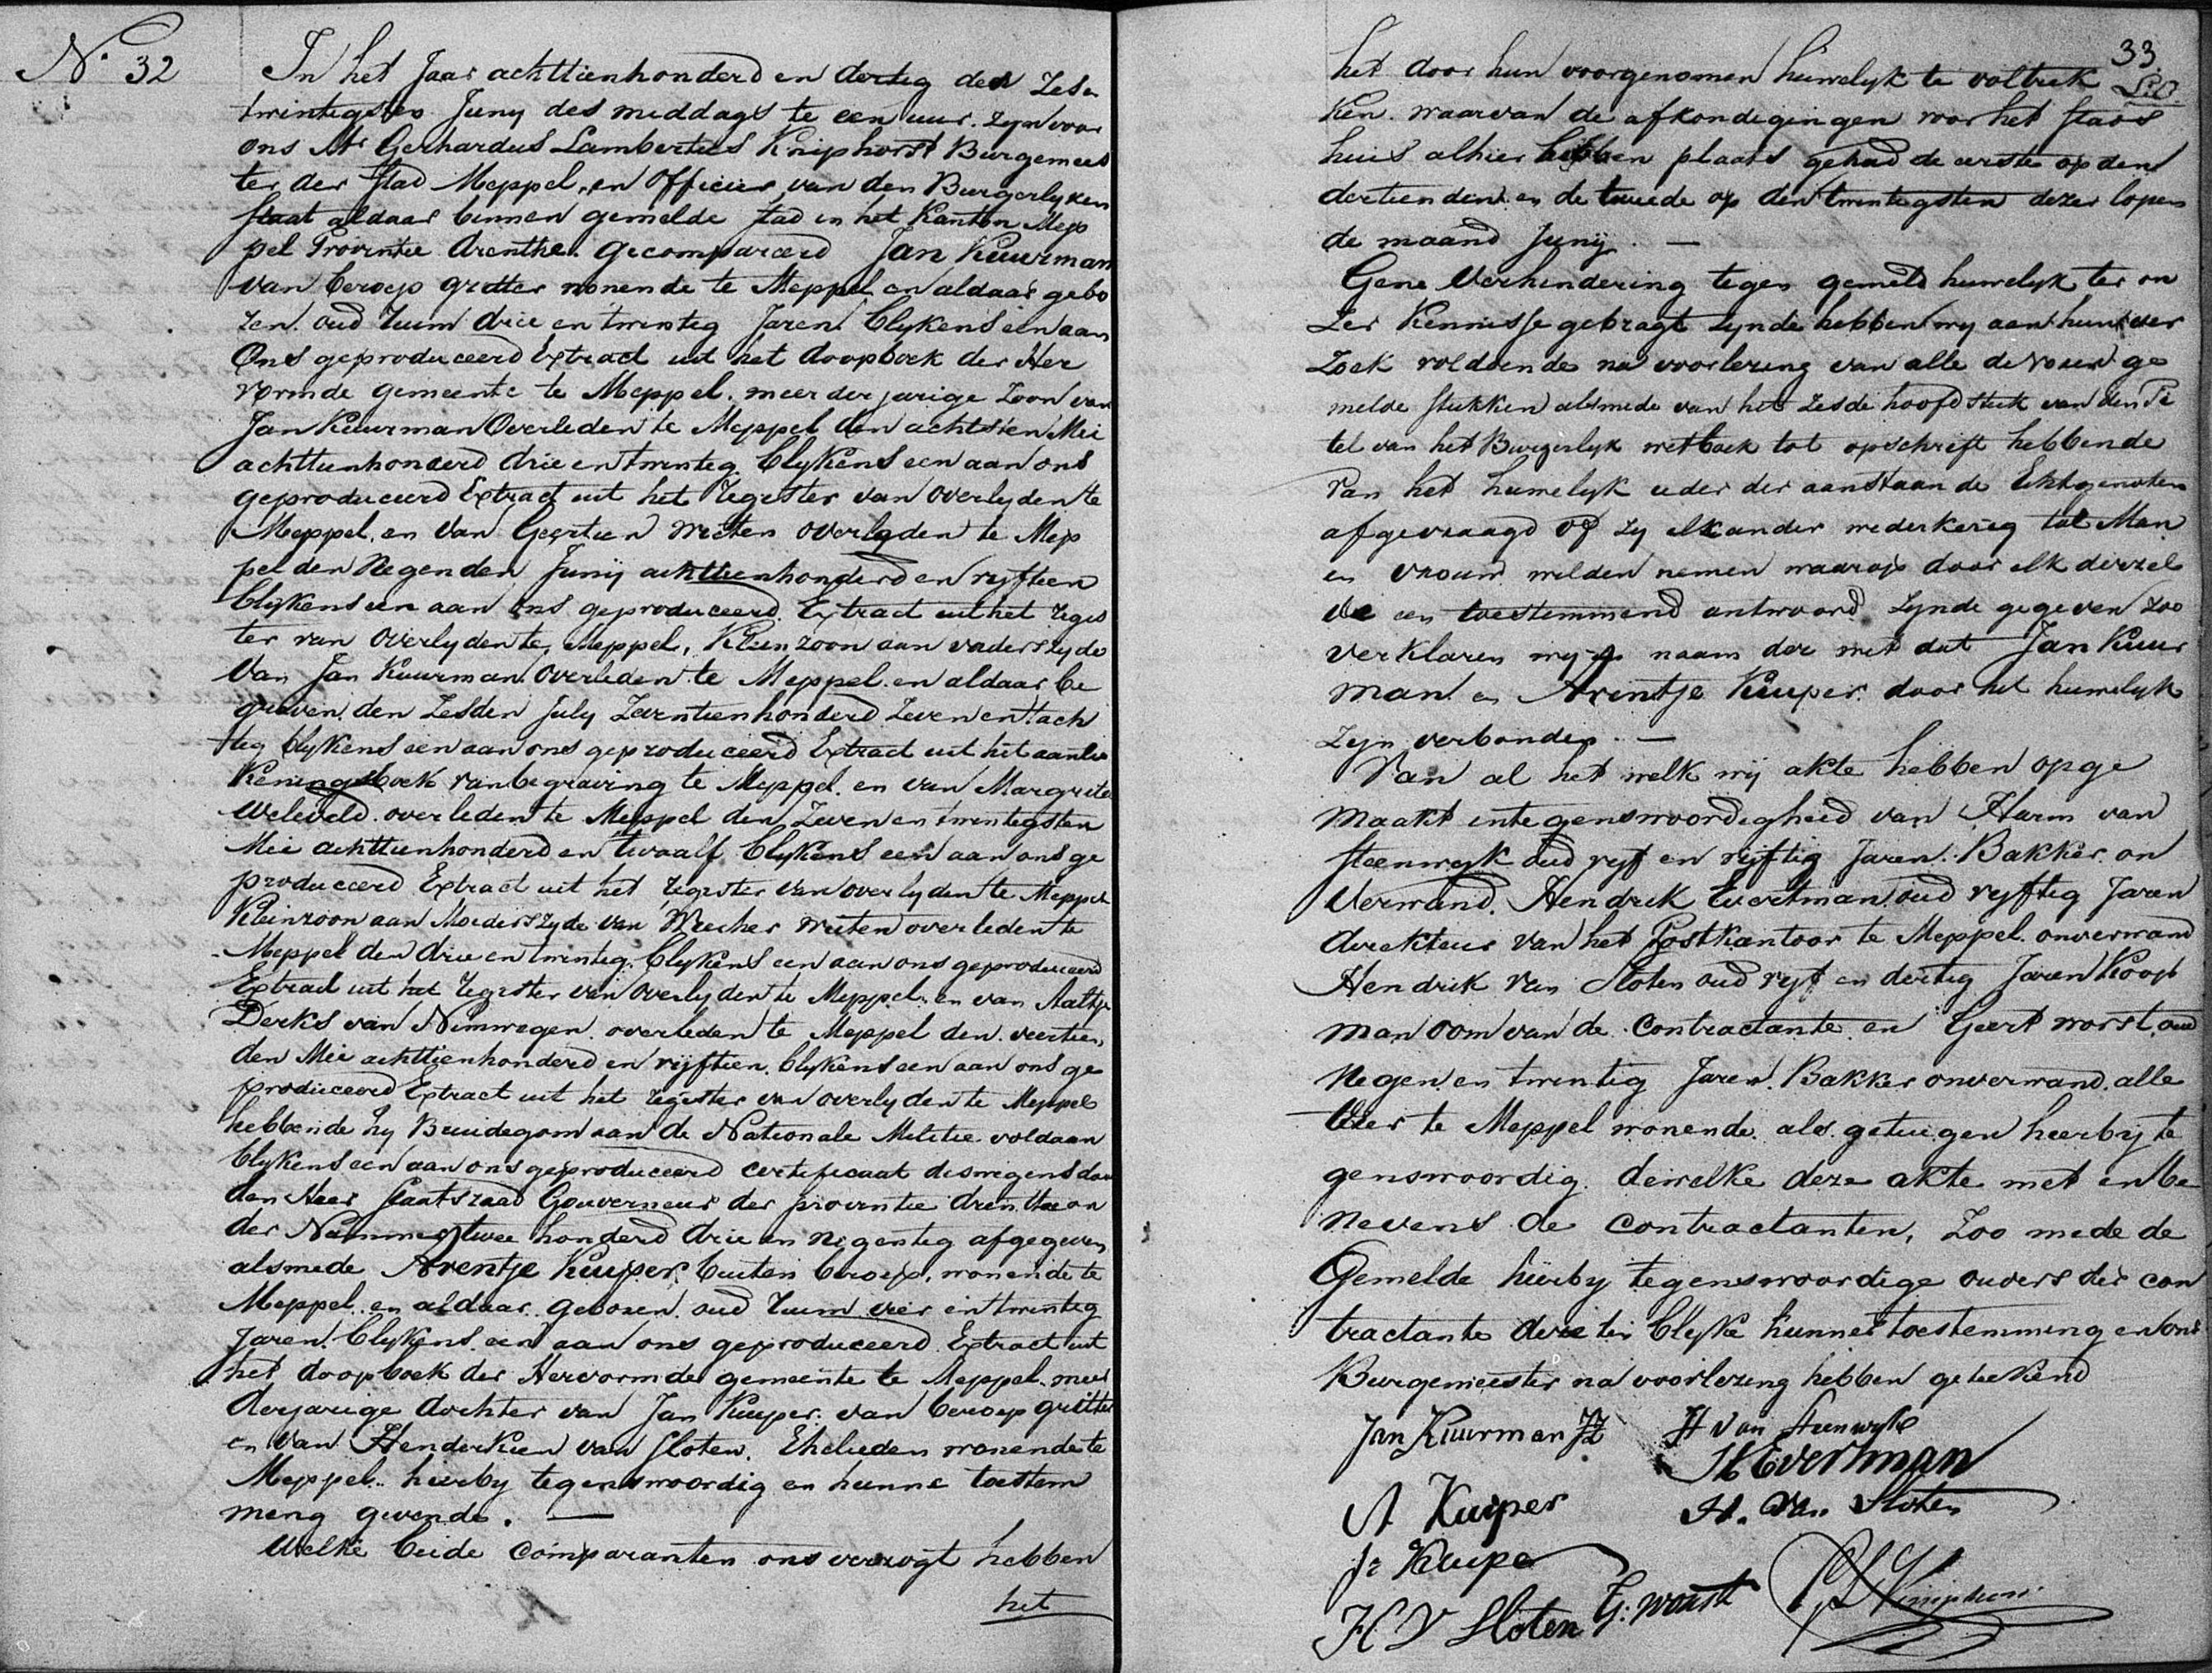 N.° 32
In het Jaar achttienhonderd en dertig den Zes en
twintigsten Juny des middags te een uur. zyn voor
ons Mr. Gerhardus Lambertus Kniphorst Burgemees
ter der stad Meppel, en Officier van den Burgerlyken
staat aldaar binnen gemelde stad in het Kanton Mep
pel Provintie drenthe. gecompareerd Jan Kuurman
van beroep grutter wonende te Meppel en aldaar gebo
ren. oud ruim drie en twintig Jaren blykens een aan
Ons geproduceerd Extract uit het doopboek der Her
vormde gemeente te Meppel. meerderjarige Zoon van
Jan Kuurman Overleden te Meppel den achtsten Mei
achttienhonderd drie en twintig. blykens een aan ons
geproduceerd Extract uit het Register van Overlyden te
Meppel. en van Geertien Wecten overleden te Mep
pel den Negenden Junij achttienhonderd en vyftien
blykens een aan ons geproduceerd Extract uit het regis
ter van Overlyden te Meppel, Kleinzoon aan vaderszyde
Van Jan Kuurman Overleden te Meppel. en aldaar be
graven den Zesden July Zeventienhonderd Zeven en tach
tig blykens een aan ons geproduceerd Extract uit het aante
keningsboek van begraving te Meppel. en van Margrita
Weleveld. overleden te Meppel den Zeven en twintigsten
Mei achttienhonderd en twaalf blykens een aan ons ge
produceerd Extract uit het register van overlyden te Meppel
Kleinzoon aan Moederszyde van Wecher Wecten overleden te
Meppel den drie en twintig. blykens een aan ons geproduceerd
Extract uit het register van Overlyden te Meppel. en van Aaltje
Derks van Nimwegen overleden te Meppel den veertien
den Mei achttienhonderd en vijftien. blykens een aan ons ge
produceerd Extract uit het register van overlyden te Meppel
hebbende hy Bruidegom aan de Nationale Militie voldaan
blykens een aan ons geproduceerd certificaat deswegens door
den Heer staatsraad Gouverneur der provintie drenthe on
der Nummer twee honderd drie en negentig afgegeven
alsmede Arentje Kuiper, buiten beroep, wonende te
Meppel. en aldaar geboren oud ruim vier en twintig
Jaren. blykens een aan ons geproduceerd Extract uit
het doopboek der Hervormde gemeente te Meppel. meer
derjarige dochter van Jan Kuiper. van beroep grutter
en van Henderkien van Sloten. Ehelieden wonende te
Meppel. hierby tegenswoordig en hunne toestem
ming gevende. —
Welke beide comparanten ons verzogt hebben
het
33.
het door hun voorgenomen huwelyk te voltrek
ken. waarvan de afkondigingen voor het stads
huis alhier hebben plaats gehad de eerste op den
dertienden en de tweede op den twintigsten dezer lopen
de maand Junij. —
Gene Verhindering tegen gemeld huwelyk ter on
zer Kennisse gebragt zynde hebben wy aan hun ver
zoek voldoende na voorlezing van alle de voren ge
melde stukken alsmede van het zesde hoofdstuk van den Ti
tel van het Burgerlyk wetboek tot opschrift hebbende
Van het huwelyk ieder der aanstaande Echtgenoten
afgevraagd of zy elkander wederkerig tot Man
en vrouw wilden nemen waarop door elk derzel
ve een toestemmend antwoord zynde gegeven zoo
verklaren wy in naam der wet dat Jan Kuur
man en Arentje Kuiper. door het huwelyk
Zyn verbonden. —
Van al het welk wij akte hebben opge
maakt in tegenswoordigheid van Harm van
steenwyk oud vyf en vyftig Jaren. Bakker. on
verwand. Hendrik Evertman oud vyftig Jaren
direkteur van het Postkantoor te Meppel. onverwand
Hendrik van Sloten oud vyf en dertig Jaren Koop
man oom van de Contractante. en Geert worst, oud
Negen en twintig Jaren. Bakker onverwand. alle
Vier te Meppel wonende. als getuigen hierby te
genswoordig. dewelke deze akte met en be
nevens de Contractanten, Zoo mede de
Gemelde hierby tegenswoordige ouders der con
tractante deze ten blyke hunner toestemming en ons
Burgemeester na voorlezing hebben geteekend
Jan Kuurman JZ
H van Steenwyk
H Evertman
A Kuiper
H. Van Sloten
Jn Kuiper
H V Sloten
G: worst
GL Kniphorst